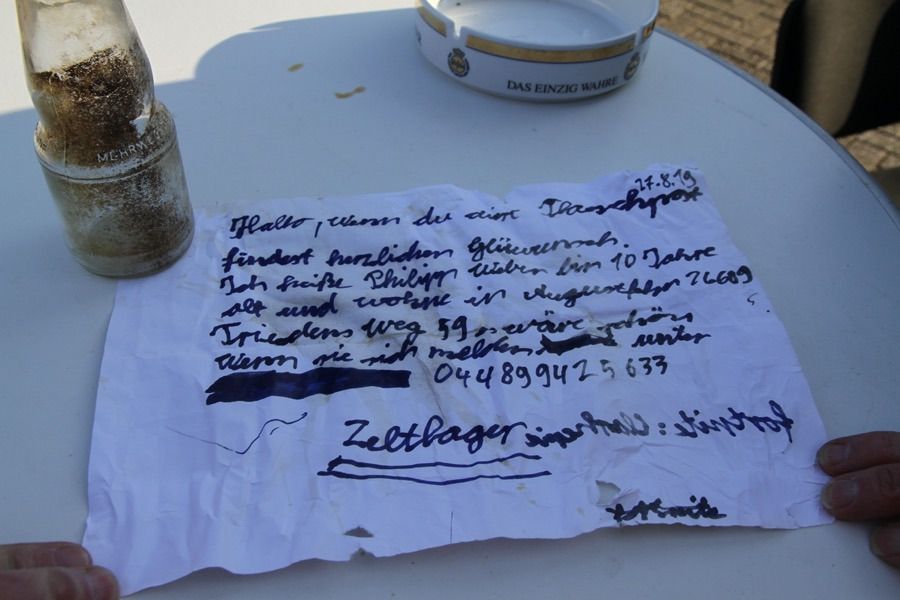 DAS EINZIG WAHRE
MEHRWE
27.8.19
Hallo, wenn du eine Flaschpost
findest herzlichen Glüwunsch.
Ich heiße Philipp bin 10 Jahre
alt und wohne in Augustfehn 26689
Friedens Weg 59 wäre schön
Wenn sie sich melden unter
04489942 5 633
Zeltlager